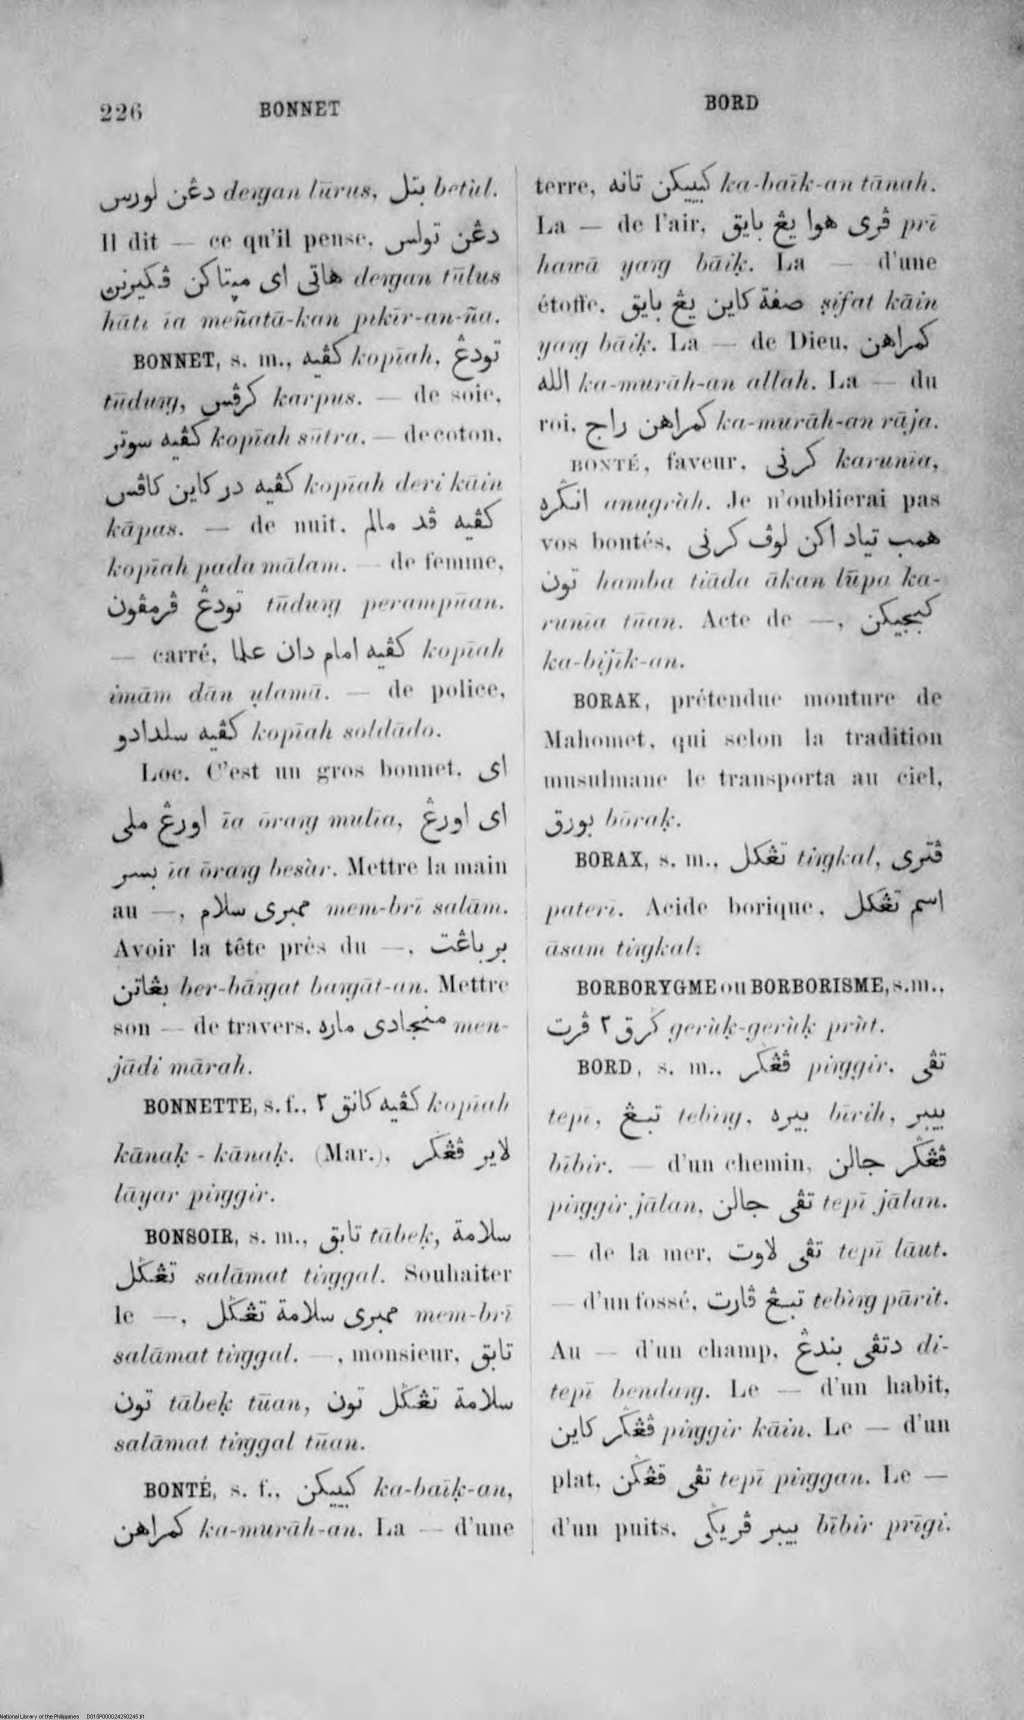 226 BONNET BORD
دڠن لورس deṅgan lūrus, بتل betùl.
Il dit — ce qu'il pense, دڠن تولس
هاتي اي مپتاكن ڤكيرنڽ deṅgan tūlus
hāti īa meñatā-kan pikīr-an-ña.
BONNET, s. m., كڤيه kopīah, تودڠ
tūduṅg, كرڤس karpus. — de soie,
كڤيه سوتر kopīah sūtra. — de coton,
كڤيه در كاين كاڤس kopīah deri kāin
kāpas. — de nuit, كڤيه ڤد مالم
kopīah pada mālam. — de femme,
تودڠ ڤرمڤون tūduṅg perampūan.
— carré, كڤيه امام دان علما kopīah
imām dān ụlamā. — de police,
كڤيه سلدادو kopīah soldādo.
Loc. C'est un gros bonnet, اي
اورڠ ملي īa ōraṅg mulīa, اي اورڠ
بسر īa ōraṅg besàr. Mettre la main
au —, ممبري سلام mem-brī salām.
Avoir la tête près du —, برباڠت
بڠاتن ber-bāṅgat baṅgāt-an. Mettre
son — de travers, منجادي ماره men-
jādi mārah.
BONNETTE, s. f., كڤيه كانق ٢ kopīah
kānaḳ - kānaḳ. (Mar.), لاير ڤڠݢر
lāyar piṅggir.
BONSOIR, s. m., تابق tābeḳ, سلامة
تڠݢل salāmat tiṅggal. Souhaiter
le —, ممبري سلامة تڠݢل mem-brī
salāmat tiṅggal. —, monsieur, تابق
تون tābeḳ tūan, سلامة تڠݢل تون
salāmat tiṅggal tūan.
BONTÉ, s. f., كبيكن ka-baīḳ-an,
كمراهن ka-murāh-an. La — d'une
terre, كبيكن تانه ka-baīk-an tānah.
La — de l'air, ڤري هوا يڠ بايق prī
hawā yaṅg bāiḳ. La — d'une
étoffe, صفة كاين يڠ بايق ṣifat kāin
yaṅg bāiḳ. La — de Dieu, كمراهن
الله ka-murāh-an allah. La — du
roi, كمراهن راج ka-murāh-an rāja.
BONTÉ, faveur, كرني karunīa,
انݢره anugràh. Je n'oublierai pas
vos bontés, همب تياد اكن لوڤ كرني
تون hamba tiāda ākan lūpa ka-
runīa tūan. Acte de —, كبجيكن
ka-bijīk-an.
BORAK, prétendue monture de
Mahomet, qui selon la tradition
musulmane le transporta au ciel,
بورق bōraḳ.
BORAX, s. m., تڠكل tiṅgkal, ڤتري
paterī. Acide borique, اسم تڠكل
āsam tiṅgkal.
BORBORYGME ou BORBORISME, s. m.,
ݢرق ٢ ڤرت gerùḳ-gerùḳ prùt.
BORD, s. m., ڤڠݢر piṅggir, تڤي
tepī, تبڠ tebìṅg, بيره bīrih, بيبر
bībir. — d'un chemin, ڤڠݢر جالن
piṅggir jālan, تڤي جالن tepī jālan.
— de la mer, تڤي لاوت tepī lāut.
— d'un fossé, تبڠ ڤارت tebìṅg pārit.
Au — d'un champ, دتڤي بندڠ di-
tepī bendaṅg. Le — d'un habit,
ڤڠݢر كاين piṅggir kāin. Le — d'un
plat, تڤي ڤڠݢن tepī piṅggan. Le —
d'un puits, بيبر ڤريݢي bībir prīgi.
National Library of the Philippines